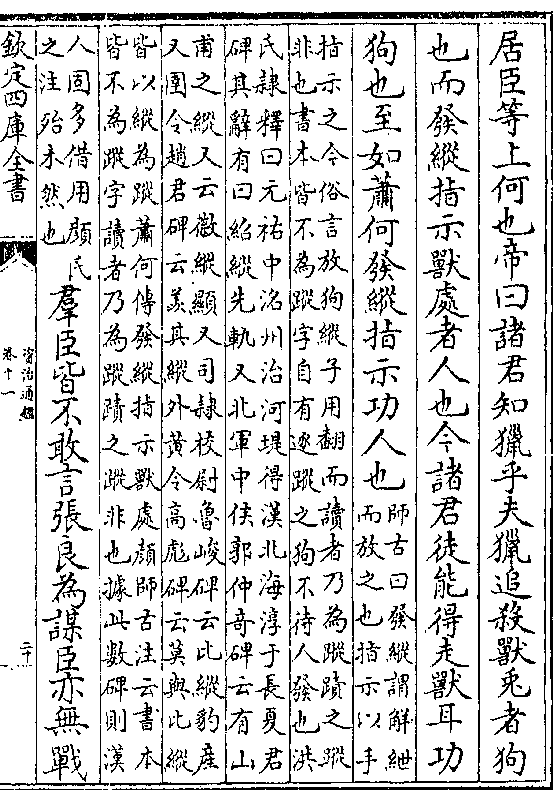 居臣等上何也帝曰諸君知獵乎夫獵追殺獸兎者狗
也而發縱指示獸處者人也今諸君徒能得走獸耳功
狗也至如蕭何發縱指示功人也
師古曰發縱謂解紲
而放之也指示以手
指示之今俗言放狗縱子用翻而讀者乃為蹤蹟之蹤
非也書本皆不為蹤字自有逐蹤之狗不待人發也洪
氏隷釋曰元祐中洺州治河堤得漢北海淳于長夏君
碑其辭有曰紹縱先軌又北軍中侯郭仲竒碑云有山
甫之縱又云徽縱顯又司隷校尉魯峻碑云比縱豹産
又圉令趙君碑云羙其縱外黃令高彪碑云莫與比縱
皆以縱為蹤蕭何傳發縱指示獸處顔師古注云書本
皆不為蹤字讀者乃為蹤蹟之蹤非也據此數碑則漢
人固多借用顔氏
之注殆未然也
羣臣皆不敢言張良為謀臣亦無戰
欽定四庫全書
資治通鑑
卷十一
二十